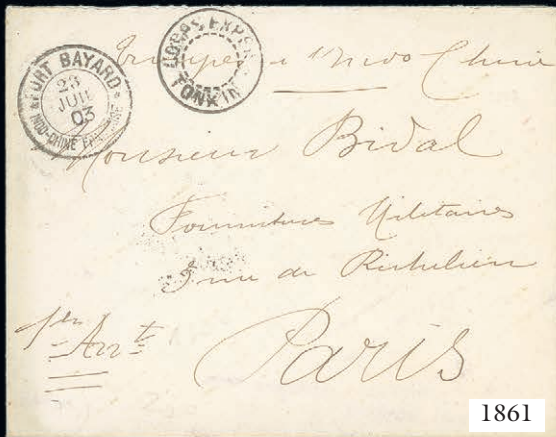 FORT BAYARD
23
JUIL
03
INDO-CHINE FRANÇAISE
CORPS EXPERE
TONKIN
Troupes Indo Chine
Monsieur Bidal
Fournitures Militaires
5 rue de Richelieu
1er Arrt
Paris
1861